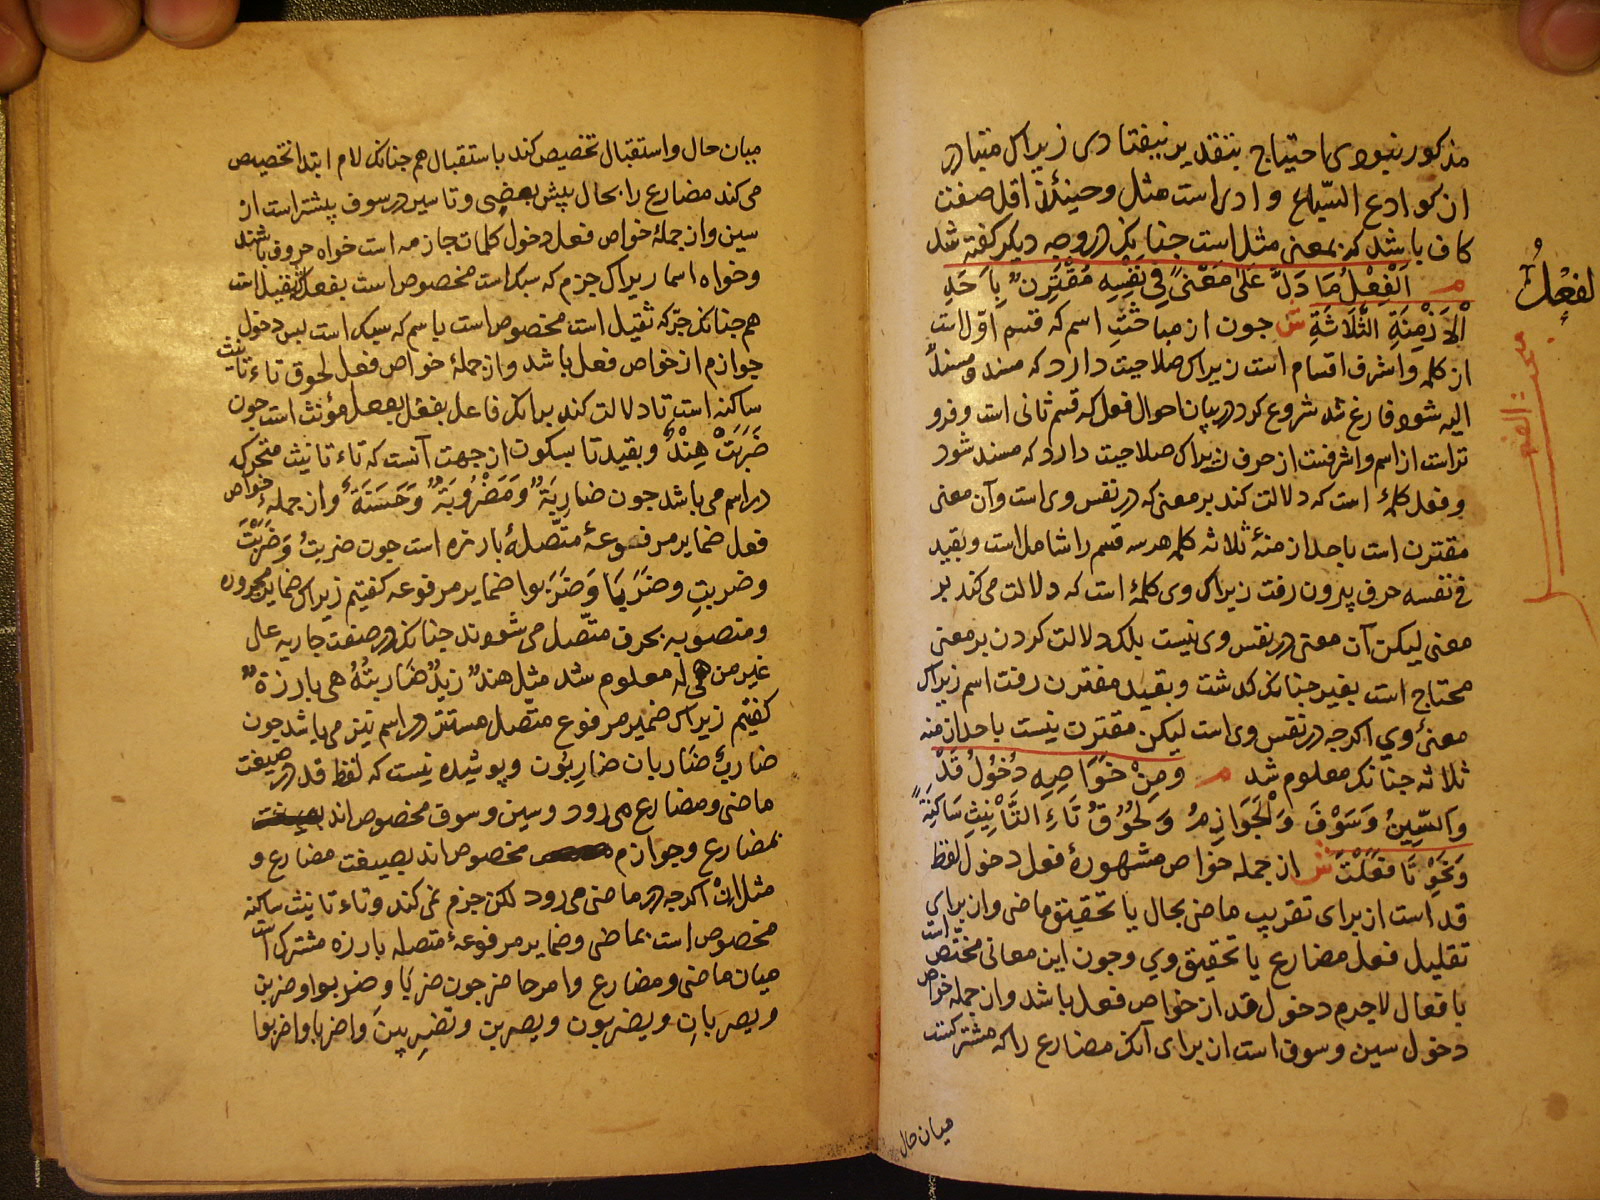 مذکور نبودی احتیاج بتقدیر نیفتادی زیراک متبادر
ازکوادع السّباع وادی است مثل وحینئذٍ اقل صفت
کاف باشد که بمعنی مثل است جنانک در وجه دیکر کفته شد
م اَلْفِعْلُ مَا دَلَّ عَلَی مَعْنیً فِی نَفْسِهِ مُقْتَرِنٍ بِاَحَدِ
الْاَزْمِنَةِ الثَّلَاثَةِ ش جون از مباحث اسم که قسم اوّل است
از کلمه و اشرف اقسام است زیراک صلاحیت دارد که مسند و مسندٌ
الیه شود فارغ شد شروع کرد در بیان احوال فعل که قسم ثانی است و فرو
تراست از اسم و اشرفست از حرف زیراک صلاحیت دارد که مسند شود
و فعل کلمۀ است که دلالت کند بر معنی که در نفس وی است وآن معنی
مقترن است باحد ازمنۀ ثلاثه کلمه هر سه قسم را شامل است و بقید
فی نفسه حرف بیرون رفت زیراک وی کلمۀ است که دلالت می کند بر
معنی لیکن آن معنی در نفس وی نیست بلک دلالت کردن بر معنی
محتاج است بغیر جنانک کذشت و بقید مقترن رفت اسم زیراک
معنیٔ وی اکرجه در نفس وی است لیکن مقترن نیست باحد ازمنه
ثلاثه جنانک معلوم شد م وَمِنْ خَوَاصِهِ دُخُولُ قَدْ
وَالسّینُ وَسَوْفَ وَالْجَوَازِمُ وَلُحُوْقُ تَاءِ التَّأْنِیْثِ سَاکِنَةً
وَنَحْوِ تَا فَعَلَتْ ش از جمله خواص مشهورۀ فعل دخول لفظ
قد است از برای تقریب ماضی بحال یا تحقیق ماضی واز برای
تقلیل فعل مضارع یا تحقیق وی وجون این معانی مختص است
بافعال لاجرم دخول قد از خواص فعل باشد واز جمله خواص
دخول سین وسوف است از برای آنک مضارع را که مشترکست
میان حال
الفعل
مبحث الفعل
میان حال واستقبال تخصیص کند باستقبال هم جنانک لام ابتدا تخصیص
می کند مضارع را بحال پیش بعضی و تاسین در سوف پیشتر است از
سین واز جملۀ خواص فعل دخول کلمات جازمه است خواه حروف باشند
وخواه اسما زیراک جزم که سبک است مخصوص است بفعل که ثقیل است
هم جنانک جرّ که ثقیل است مخصوص است باسم که سبک است پس دخول
جوازم از خواص فعل باشد واز جملۀ خواص فعل لحوق تاء تانیث
ساکنه است تا دلالت کند برانک فاعل بفعل مؤنث است جون
ضَرَبَتْ هِنْدٌ و بقید تا بسکون از جهت آنست که تاء تانیث متحرکه
در اسم می باشد جون ضَارِبَةٌ وَمَضْرُوبَةٌ وَحَسَنَةٌ واز جملۀ خواص
فعل ضمایر مرفوعۀ متّصلۀ بارزه است جون ضربتُ وَضَرَبْتَ
وضربتِ وضَرَبَا وَضَرَبوا ضمایر مرفوعه کفتیم زیراک ضمایر مجروره
ومنصوبه بحرف متّصل می شوند جنانک در صفت جاریه علی
غیر من هی له معلوم شد مثل هندٌ زیدٌ ضَاربتُهُ هی بارزةٌ
کفتیم زیراک ضمیر مرفوع متّصل مستتر در اسم نیز می باشد جون
ضاربٌ ضَاربان ضاربُون و پوشیده نیست که لفظ قد در صیغت
ماضی ومضارع می رود وسین وسوف مخصوص اند
بمضارع وجوازم مخصوص اند بصیغت مضارع و
مثل اِنْ اکرجه در ماضی می رود لکن جزم نمی کند وتاء تانیث ساکنه
مخصوص است بماضی وضمایر مرفوعۀ متصله بارزه مشترک است
میان ماضی ومضارع وامر حاضر جون ضربا وضربوا وضربن
ویضربانِ ویضربون ویضربن وتضرِبینَ واضربا واضربوا